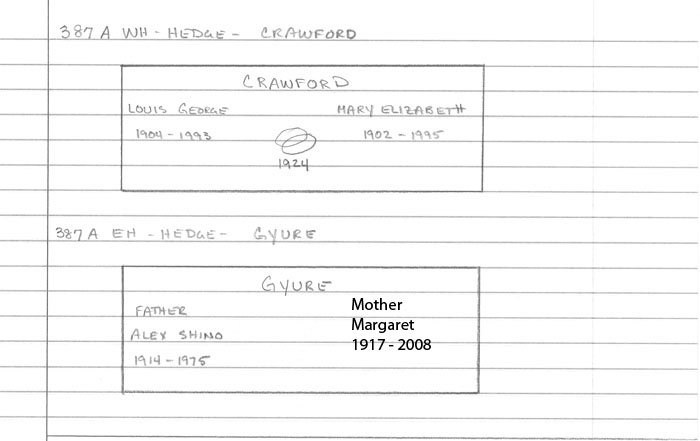 387 A WH - HEDGE - CRAWFORD
CRAWFORD
LOUIS GEORGE MARY ELIZABETH
1904 - 1993 1902 - 1995
1924
387 A EH - HEDGE - GYURE
GYURE
FATHER Mother
ALEX SHINO Margaret
1914 - 1975 1917 - 2008